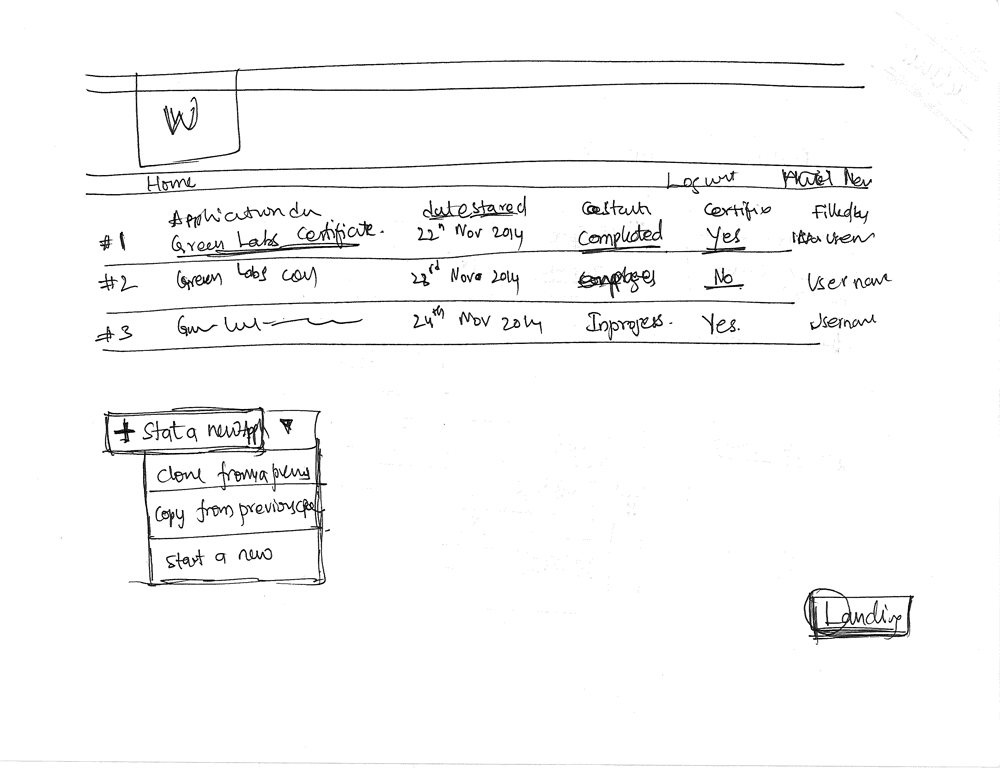 W
Home Logout
Application datestared Certific Filledby
#1 Green Labs Certificate. 22nd Nov 2014 Completed Yes User
#2 Green Labs 23rd Nov 2014 No Username
#3 24th Nov 2014 Inprogess. Yes. Username
+ Stat a new App ▼
Clone from a prevs
Copy from previous
Start a new
Landing